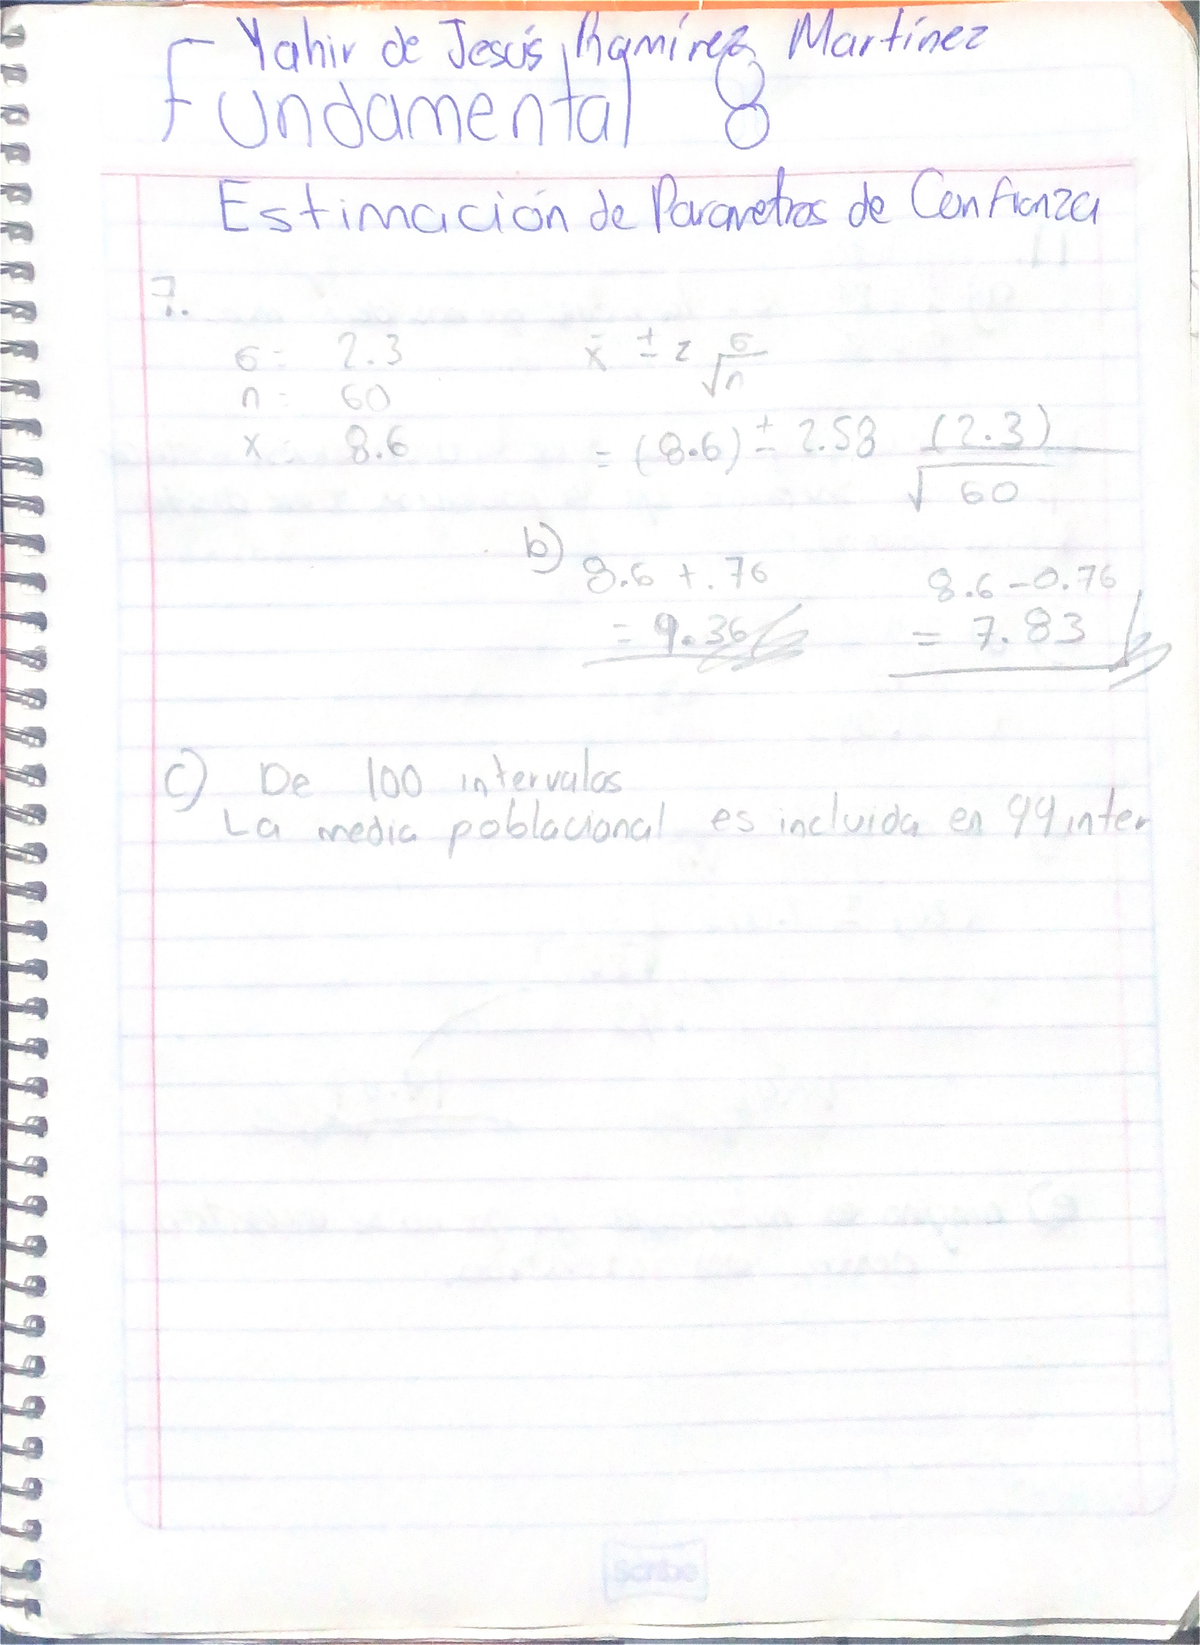 Yahir de Jesús Ramírez Martínez
Fundamental 8
Estimación de Parametros de Confianza
7.
σ = 2.3 x̄ ± z σ/√n
n = 60
x 8.6 = (8.6) ± 2.58 (2.3)/√60
b) 8.6 + .76 8.6 - 0.76
= 9.36 = 7.83
c) De 100 intervalos
La media poblacional es incluida en 99 inter
Scribe